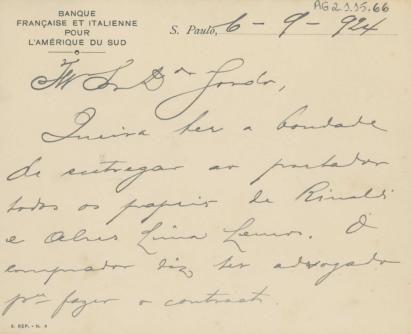 BANQUE
FRANÇAISE ET ITALIENNE
POUR
L'AMÉRIQUE DU SUD
AG 2.1.15.66
S. Paulo, 6 - 9 - 924
Sr Dr
Queira ter a bondade
de entregar ao portador
todos os papeis de Rinaldi
e Alves Lima Lemos. O
comprador diz ter advogado
pra fazer o contracto.
S. REP. - N. 4